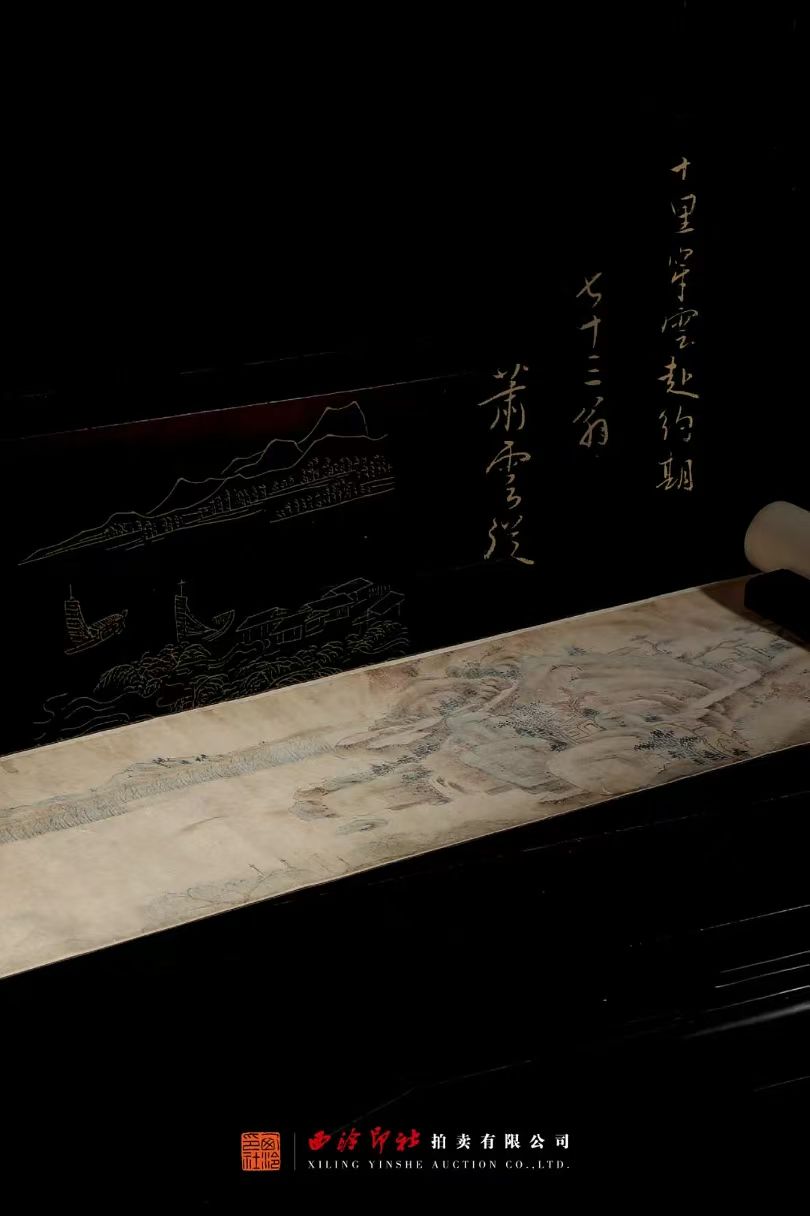 十里穿雲赴約期
七十三翁
蕭雲從
西泠印社
西泠印社拍卖有限公司
XILING YINSHE AUCTION CO.,LTD.